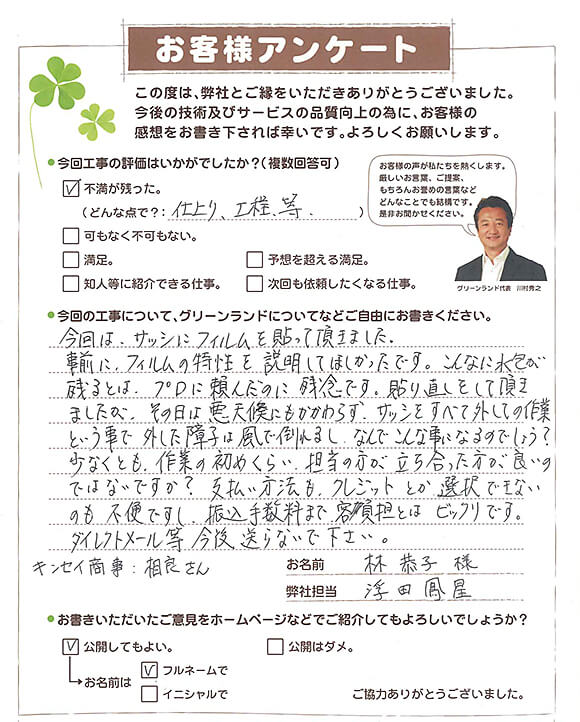 お客様アンケート
この度は、弊社とご縁をいただきありがとうございました。
今後の技術及びサービスの品質向上の為に、お客様の
感想をお書き下されば幸いです。よろしくお願いします。
●今回工事の評価はいかがでしたか?(複数回答可)
☑ 不満が残った。
(どんな点で?: 仕上り、工程、等. )
□ 可もなく不可もない。
□ 満足。 □ 予想を超える満足。
□ 知人等に紹介できる仕事。 □ 次回も依頼したくなる仕事。
お客様の声が私たちを熱くします。
厳しいお言葉、ご提案、
もちろんお誉めの言葉など
どんなことでも結構です。
是非お聞かせください。
グリーンランド代表 川村秀之
●今回の工事について、グリーンランドについてなどご自由にお書きください。
今回は、サッシにフィルムを貼って頂きました。
事前に、フィルムの特性を説明してほしかったです。こんなに水泡が
残るとは、プロに頼んだのに残念です。貼り直しをして頂き
ましたが、その日は悪天候にもかかわらず、サッシをすべて外しての作業
という事で外した障子は風で倒れるし、なんでこんな事になるのでしょう?
少なくとも、作業の初めくらい、担当の方が立ち合った方が良いの
ではないですか? 支払い方法も、クレジットとか選択できない
のも不便ですし、振込手数料まで客負担とはビックリです。
ダイレクトメール等今後送らないで下さい。
キンセイ商事:相良さん
お名前 林 恭子 様
弊社担当 浮田 鳳星
●お書きいただいたご意見をホームページなどでご紹介してもよろしいでしょうか?
☑ 公開してもよい。 □ 公開はダメ。
→お名前は ☑ フルネームで
□ イニシャルで
ご協力ありがとうございました。